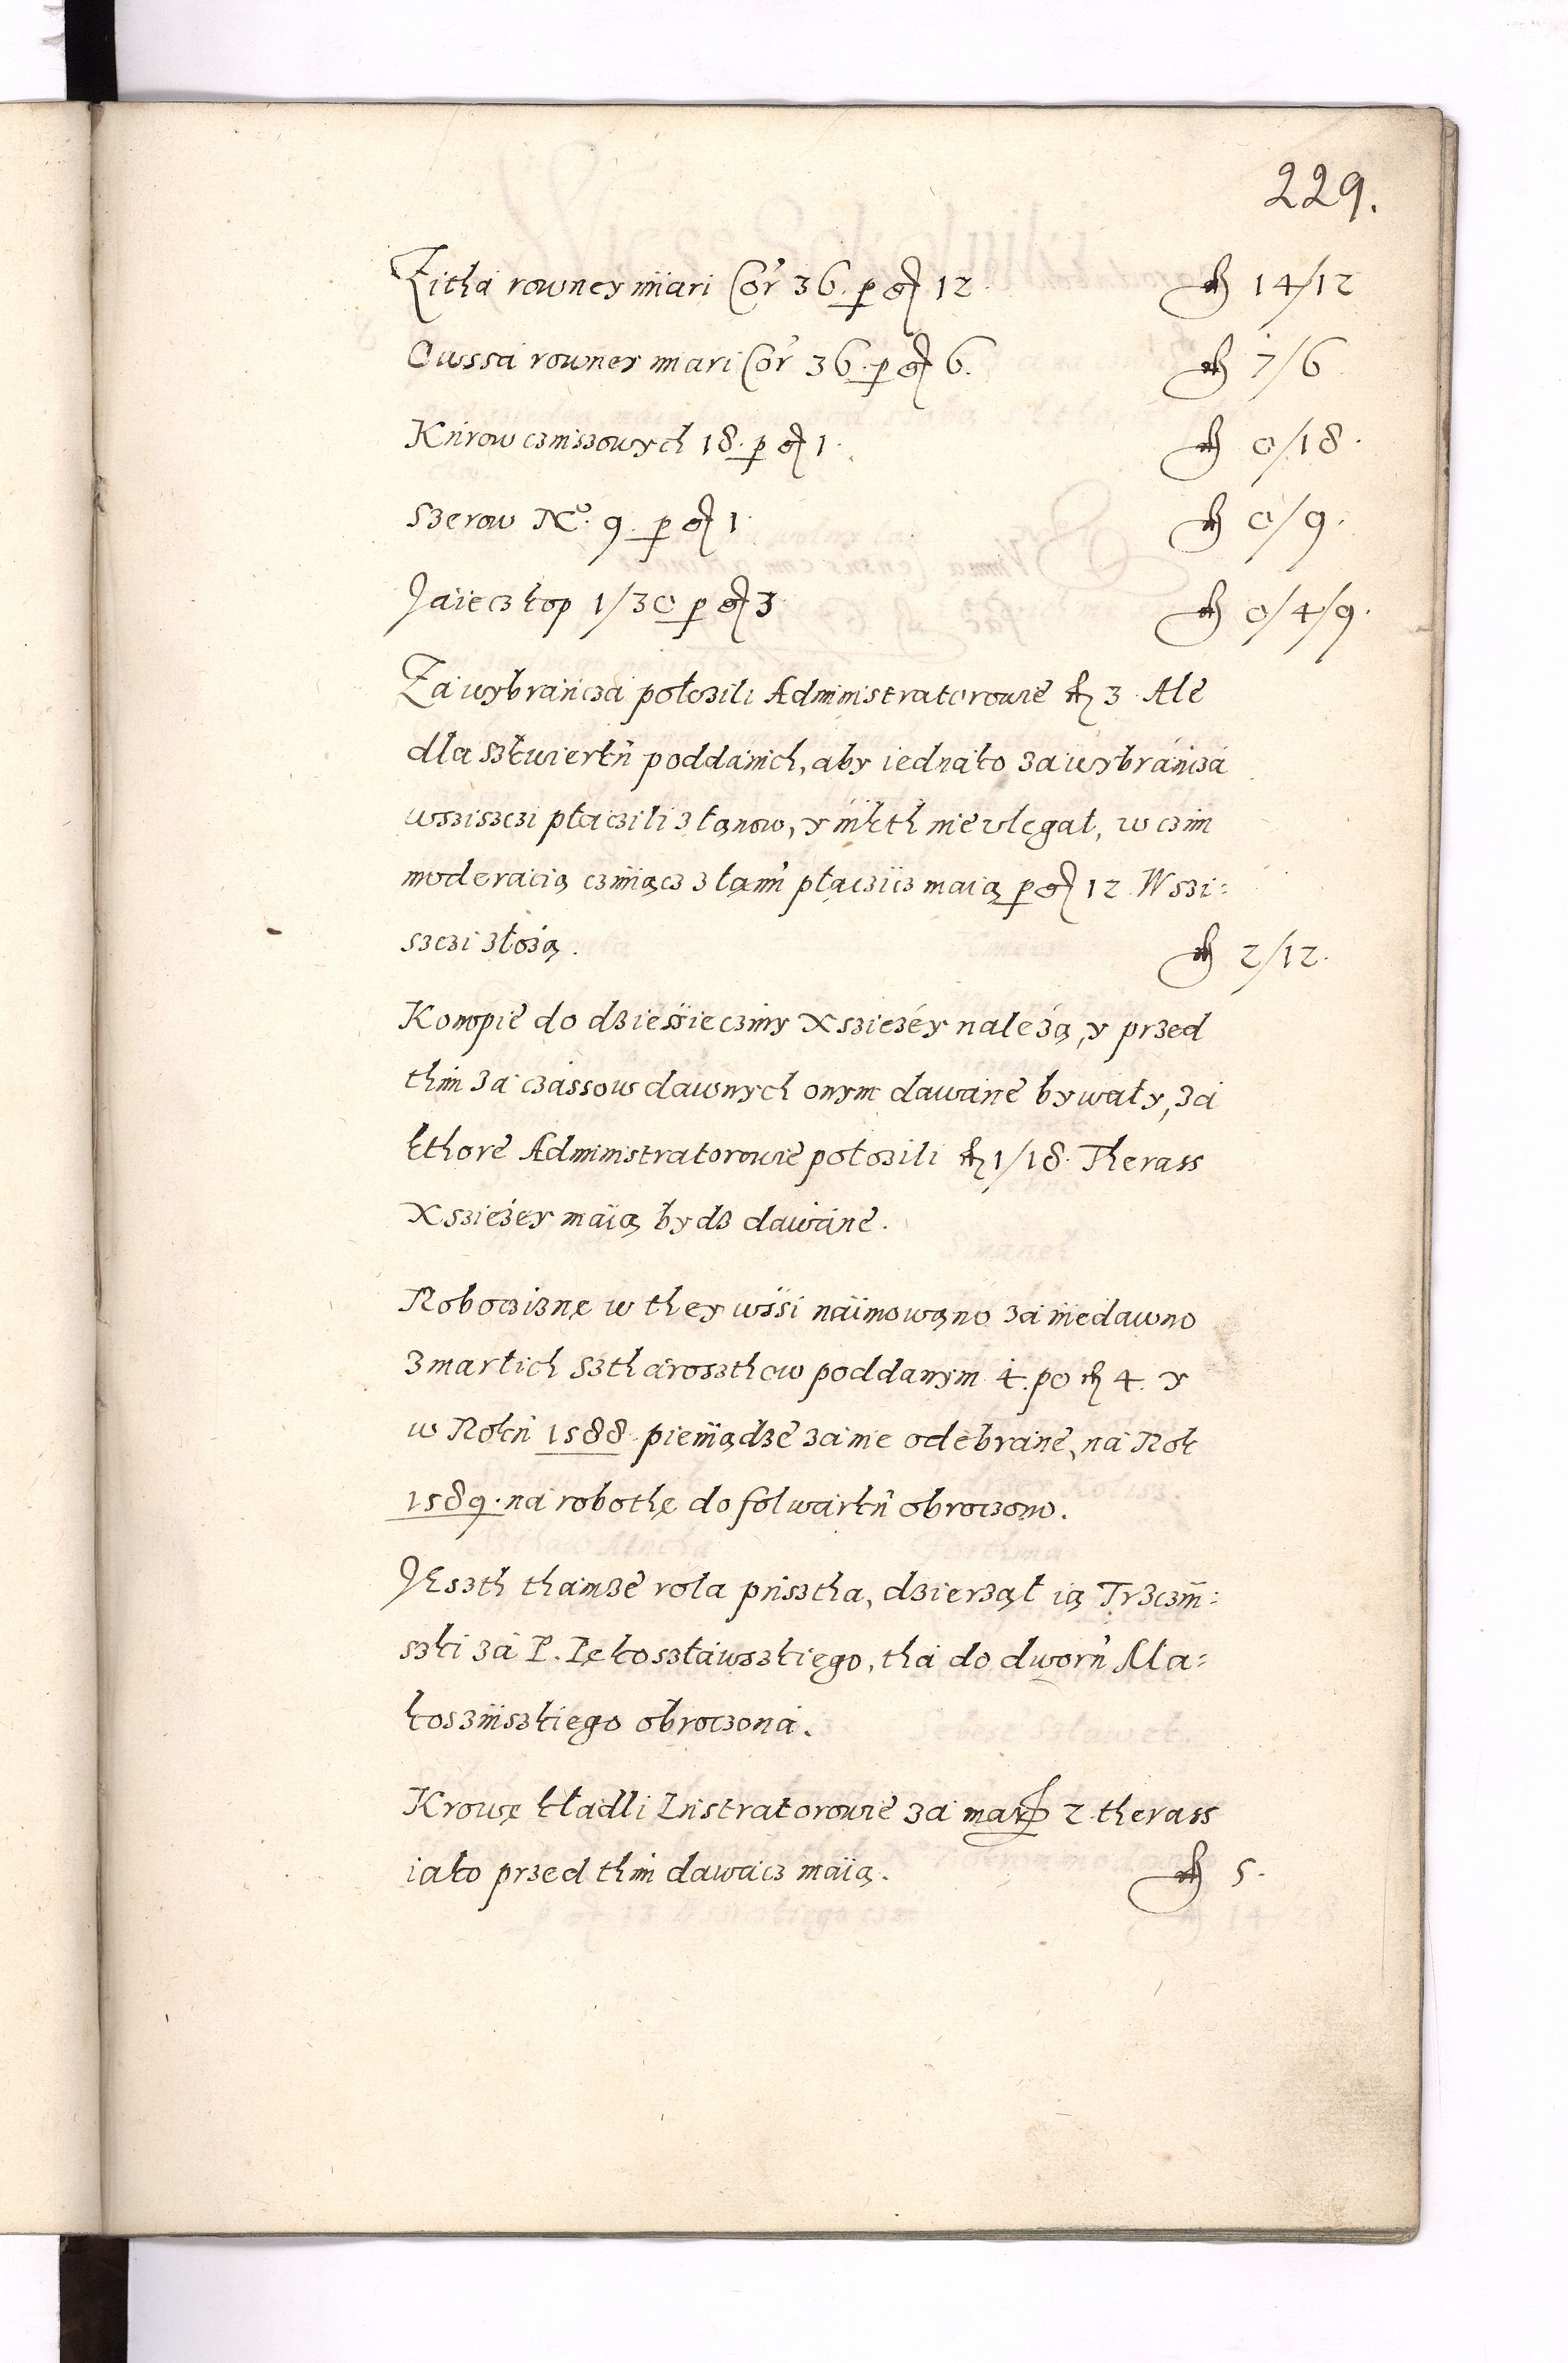 229.
Zithá rowney miari Cor 36. p gr 12 fl 14/12
Owssá rowney miari Cor 36. p gr 6. fl 7/6
Kurow czinszowych 18. p gr 1. fl 0/18.
Szerow No. 9. p gr 1 fl 0/9.
Jaiecz kop 1/30 p gr 3 fl 0/4/9.
Zá wybránczá położili Administratorowie fl 3. Ale
dla sztwierkń poddánich, aby iednáko zá wybráńczá
wsziszczi płaczili z łanow, y nikth nie vlegał, w czim
moderacią cziniącz z łanu płaczicz maią p gr 12. Wszi=
szczi złożą. fl 2/12.
Konopie do dziesieciny Xsziężéy należą, y przed
thim zá czássow dawnych onym dawáne bywały, zá
kthore Administratorowie położili fl 1/18. Therass
Xsziężey máią bydz dawáne.
Roboczizne w they wsi náimowano zá niedawno
zmarłich sztárosthow poddanym 4. po fl 4. y
w Roku 1588. pieniądze zá nie odebráne, ná Rok
1589. ná robothę do folwárku obroczono.
Jeszth thamże rola pusztha, dzierżął ią Trzczin=
szki zá P. Pękosztáwszkiego, thá do dworu Ma=
koszinszkiego obroczoná.
Krowę kładli Lustratorowie zá mar 2. therass
iako przed thim dawácz máią. fl 5.